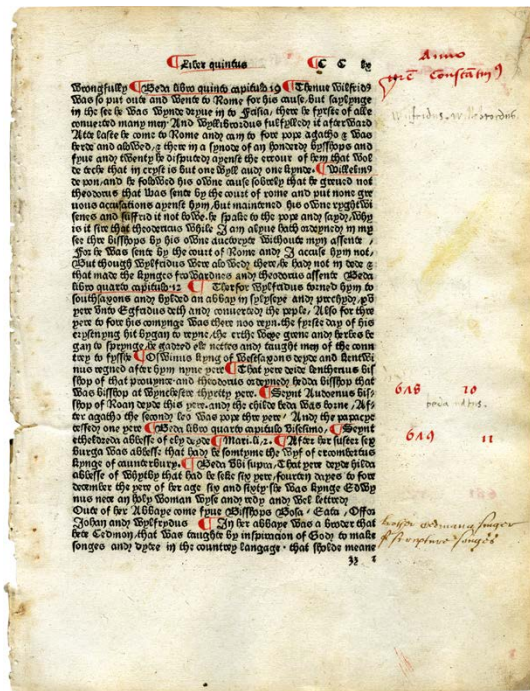 Liber quintus CC lx
Anno
gre Constantin
wrongfully Beda libro quinto capitulo 19 Thenne Wilfridus
was so put oute and wente to Rome for his cause, but saylynge
in the see he was wynde dryue in to Frisia, there he fyrste of alle
conuerted many men And Wyllibrordus fulfylled it afterward
Atte laste he come to Rome and cam to fore pope agatho & was
herde and alowed, & there in a synode of an honderd bysshops and
fyue and twenty he disputed ayenst the errour of hem that wol
de teche that in cryst is but one wyll and one kynde. Wilhelmus
de pon. and he folowed his owne cause sobrely that he greued not
theodorus that was sente by the court of rome and put none gre
uous accusations ayenst hym, but maintened his owne ryghtwi
senes and suffrid it not to we. he spake to the pope and sayd, why
is it sire that theodorus while I am alyue hath ordeyned in my
see thre bisshops by his owne auctoryte withoute myn assente,
For he was sente by the court of Rome and I accuse hym not,
But though wylfridus were alowed there, he had not in dede &
that made the kynges frowardnes and theodorus assente Beda
libro quarto capitulo 12 Therfor wylfridus torned hym to
southsaxons and bylded an abbay in sylyseye and preched,
yere vnto Egfridus deth and conuerted the peple, Also for thre
yere to fore his comynge was there noo reyn. the fyrste day of his
crystenyng hit bygan to reyne, the erthe wexe grene and herbes be
gan to sprynge, he gadred ele nettes and taught men of the coun
trey to fysshe Oswinus kyng of westsaxons deyde and kentwi
nus regned after hym nyne yere That yere deide leutherius bis
shop of that prouynce and theodorus ordeyned hedda bisshop that
was bisshop at wynchestre thyrtty yere. Seynt Audoenus bis
shop of Roan deyde this yere, and the childe beda was borne, Af
ter agatho the second leo was pope thre yere, And the papacye
cessed one yere Beda libro quarto capitulo Visesimo, Seynt
etheldreda abbesse of ely deyde Mari. li. 2. After her suster sex
burga was abbesse that had be somtyme the wyf of ercombertus
kynge of caunterbury. Beda vbi supra, That yere deyde hilda
abbesse of whytby that had be seke six yere, fourten dayes to fore
decembre the yere of her age six and sixty she was kynge Edwy
nus nece an holy woman wyse and redy and wel lettred
Oute of her Abbaye come fyue Bisshops Bosa, Eata, Offor
Johan and wylfrydus In her abbaye was a broder that
hete Cedmon, that was taught by inspiracion of God to make
songes and dytees in the countrey langage. that sholde meane
wilfridus. Willebrordus.
648 10
beda natus.
649 11
brother Cedmann a singer
of Scripture songes